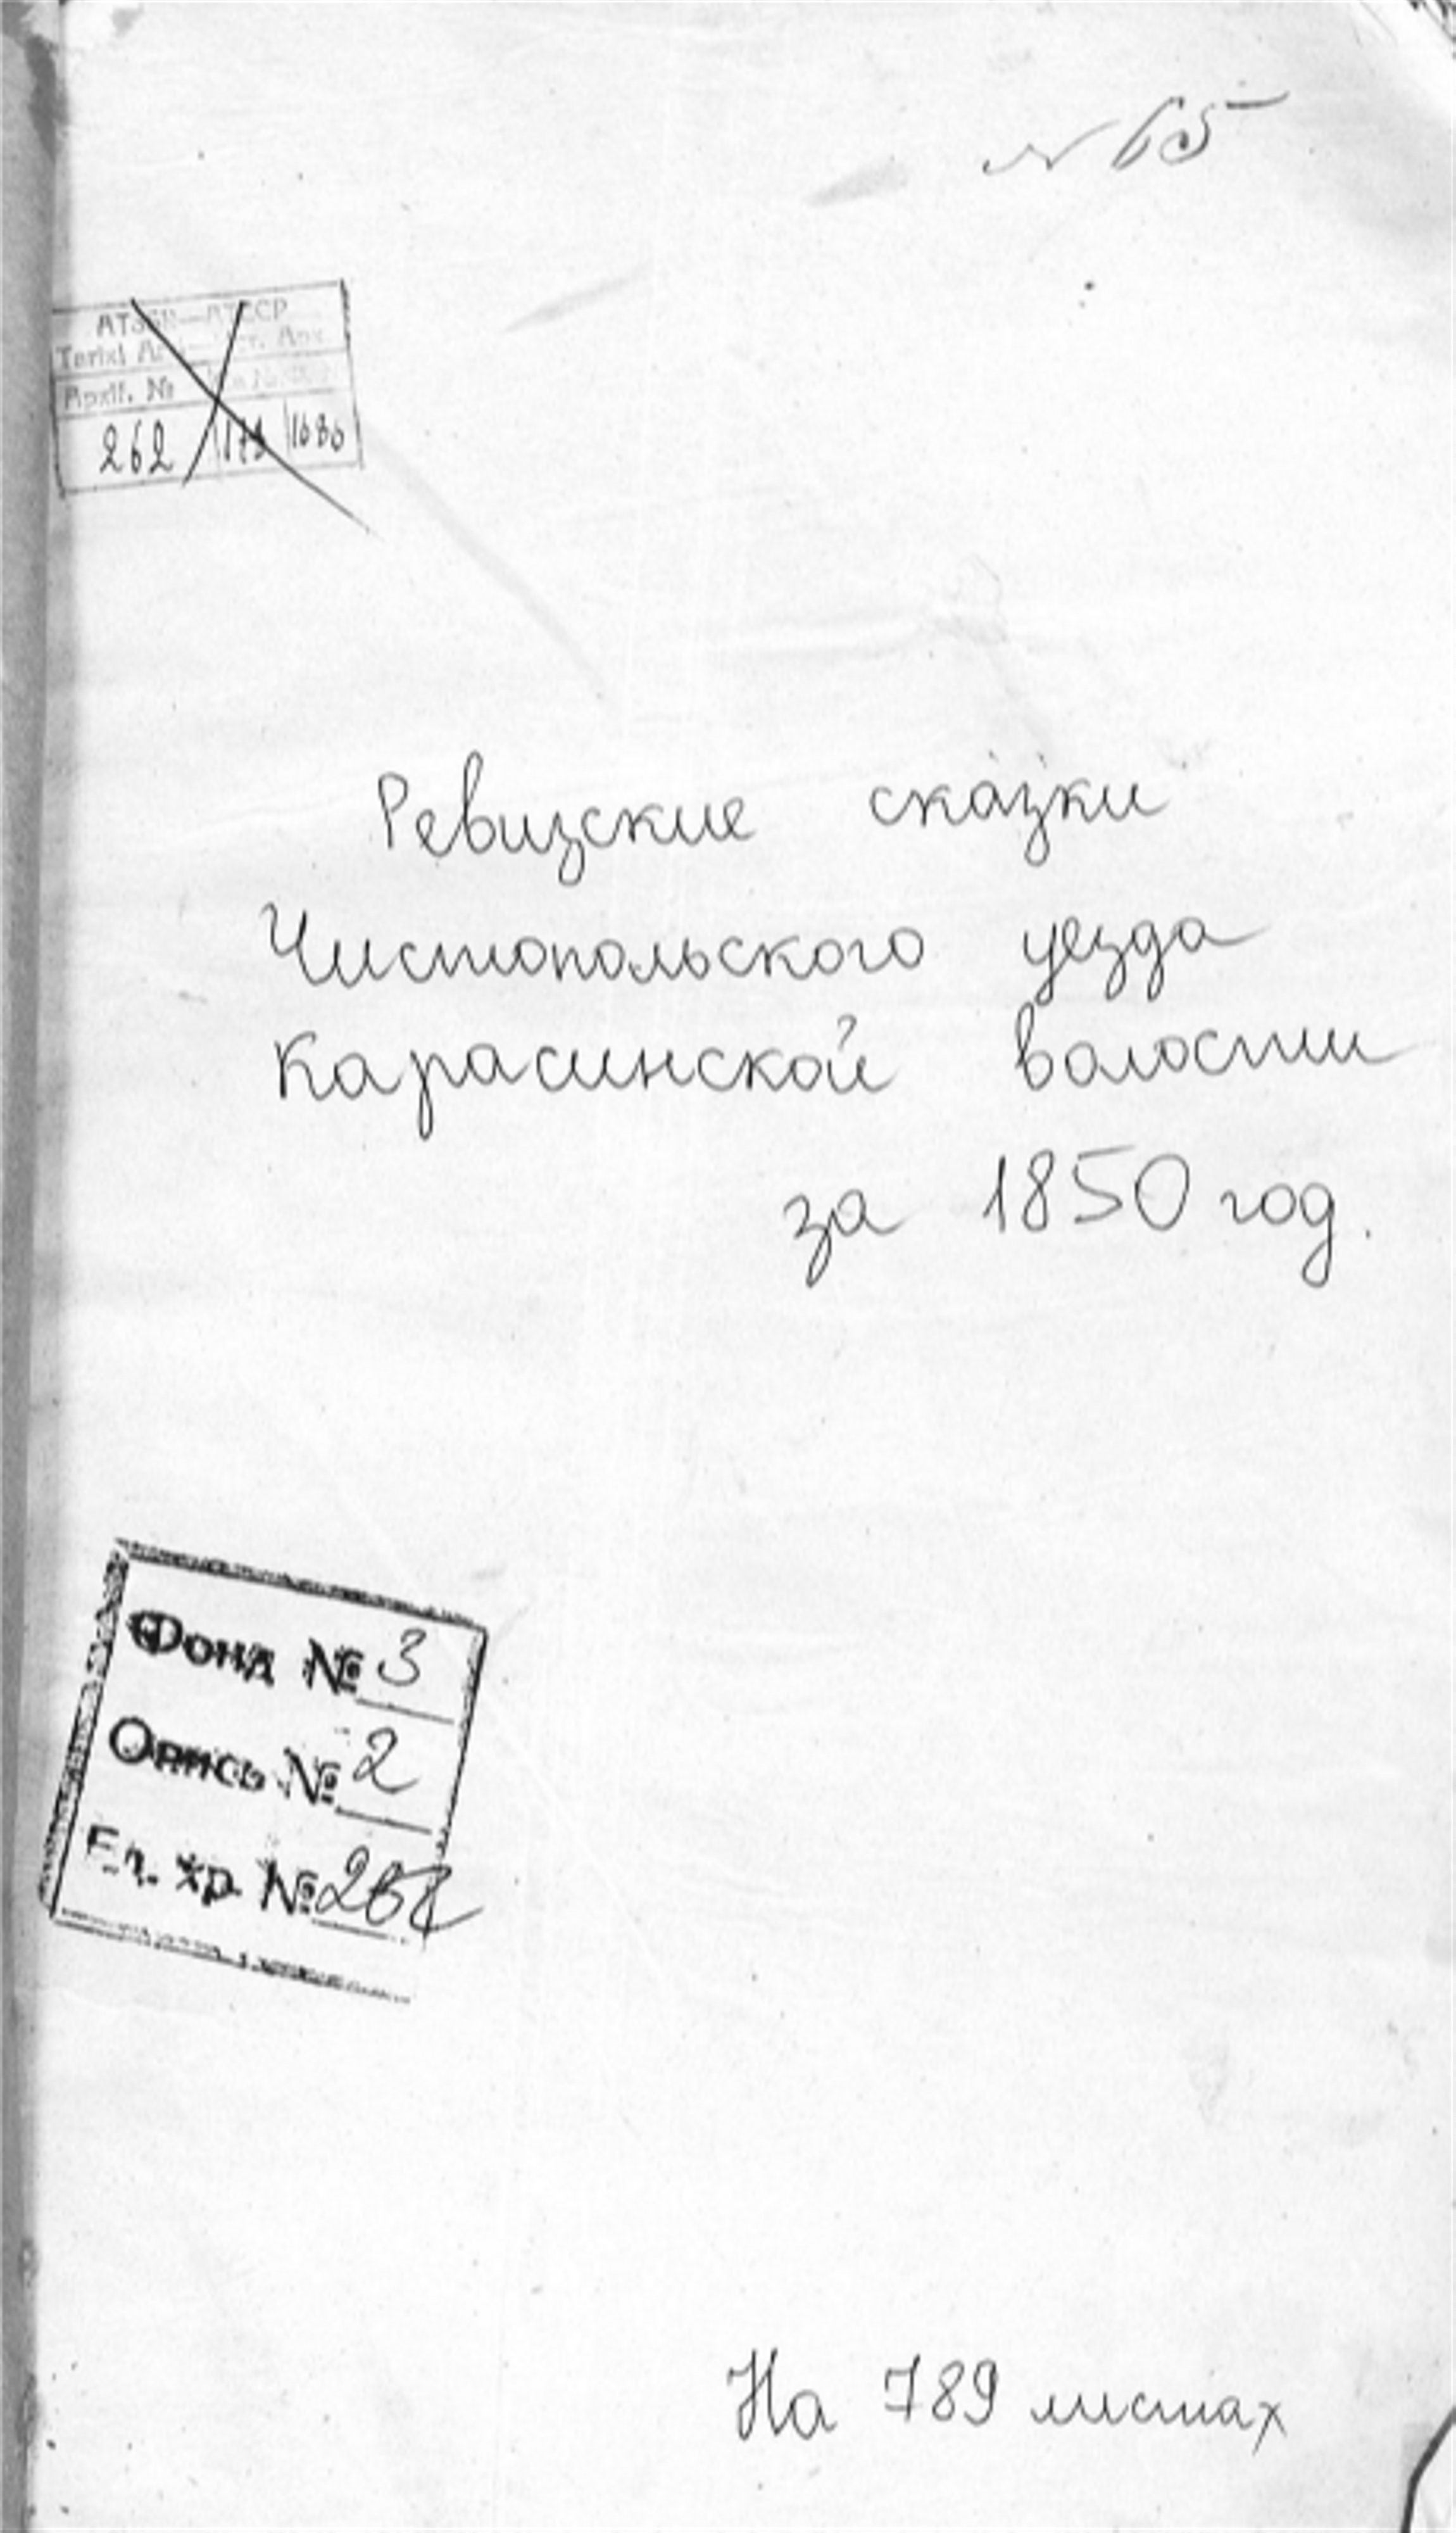 № 65
АТССР
Tarixi
Арх.
Архif. №
262 1680
Ревизские сказки
Чистопольского уезда
Карасинской волости
за 1850 год.
Фонд № 3
Опись № 2
Ед. хр. №
На 789 листах